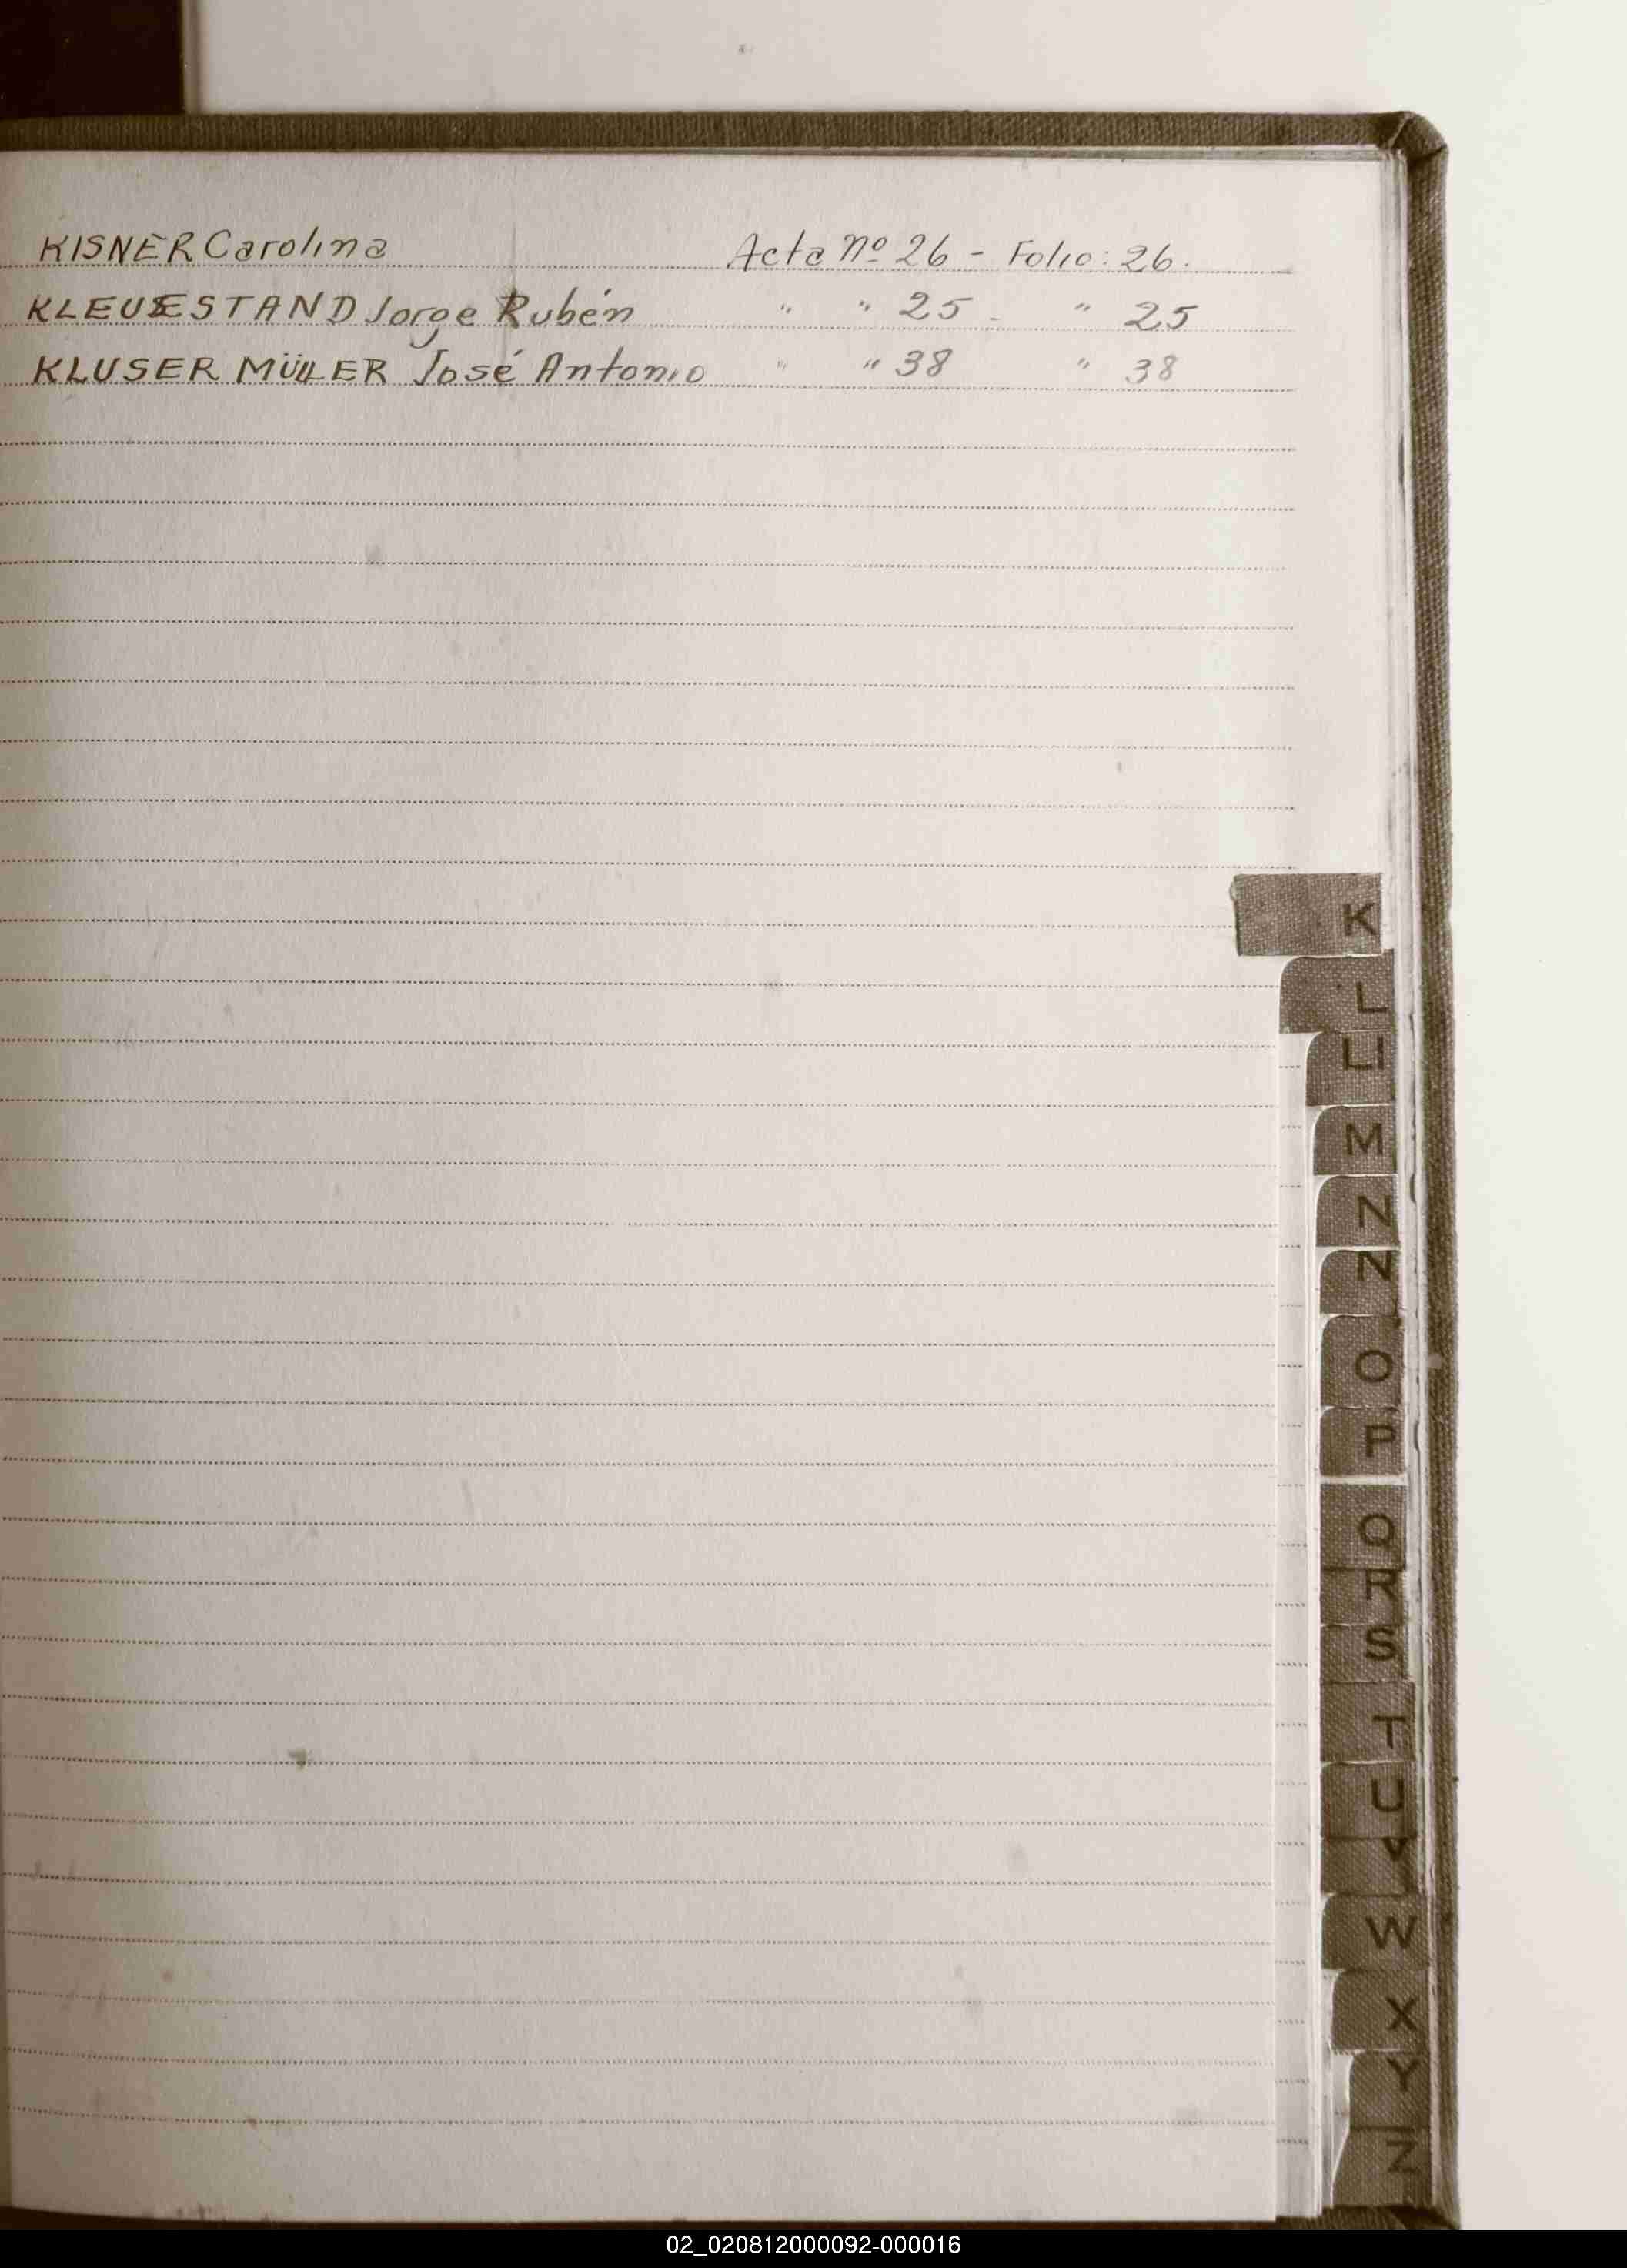 KISNER Carolina Acta Nº 26 - Folio: 26.
Jorge Rubén " " 25 - " 25
KLUSER MÜLLER José Antonio " " 38 " 38
K
L
Ll
M
N
N
O
P
Q
R
S
T
U
V
W
X
Y
Z
02_020812000092-000016